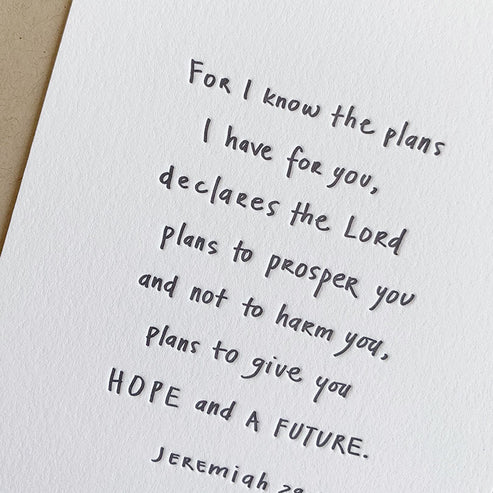 For I know the plans
I have for you,
declares the Lord
plans to prosper you
and not to harm you,
plans to give you
HOPE and A FUTURE.
Jeremiah